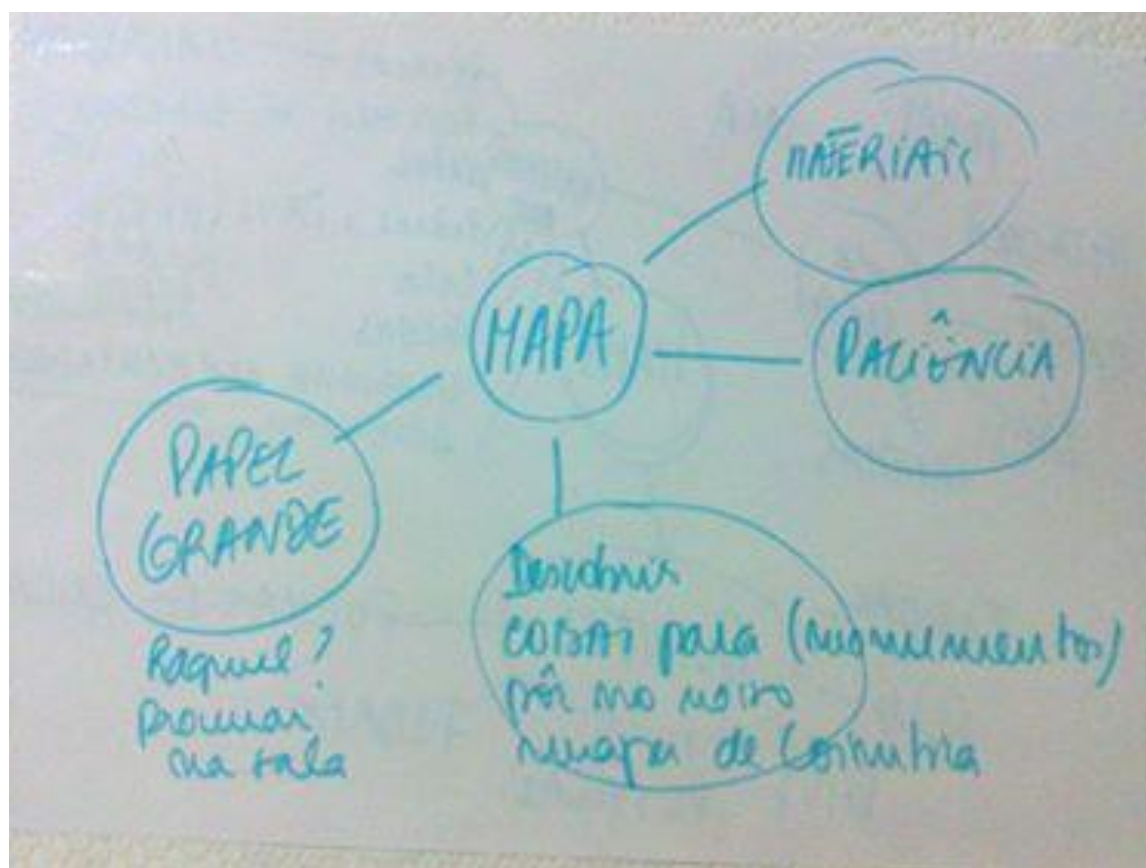 MATERIAIS
MAPA
PACIÊNCIA
PAPEL
GRANDE
Raquel?
procurar
na sala
Descobrir
COISAS para (monumentos)
pôr no nosso
mapa de Coimbra